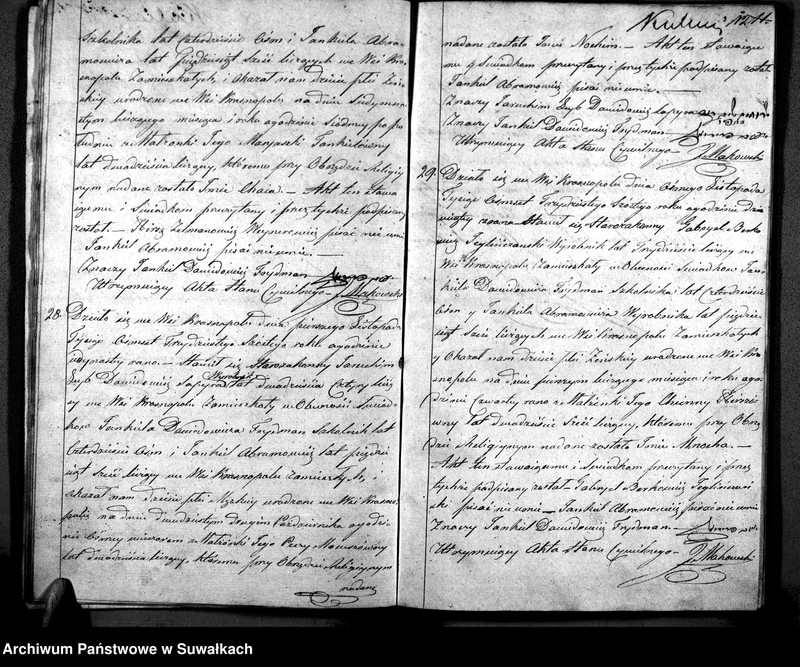 Szkolnika lat czterdzieści Ośm i Jankila Abra-
mowicza lat pięćdziesiąt Sześć liczących we Wsi Kras-
nopolu Zamieszkałych, i okazał nam dziecie płci Żeń-
skiey urodzone we Wsi Krasnopolu na dniu Siódymna-
stym bieżącego miesiąca i roku o godzinie Siódmy po po-
łudniu z Małżonki Jego Maryaski Jankielowny
lat dwadzieścia liczący, któremu przy Obrzędzie Religiy-
nym nadane zostało Imie Chaia. – Akt ten stawa-
iącemu i Świadkom przeczytany i przez tychże podpisany
został. – Hirsz Zelmanowicz Wyporewicz pisać nie umi
Jankiel Abramowicz pisać nie umie. –
Znaczy Jankiel Dawidowicz Frydman
Utrzymuiący Akta Stanu Cywilnego – J. Makowski
28. Działo się we Wsi Krasnopolu dnia pierwszego Listopada
Tysiąc Ośmset Trzydziestego Szostego roku o godzinie
iedynasty rano. – Stawił się Starozakonny Jaruchim
Leyb Dawidowicz Łapyrz Wyrobnik lat dwadzieścia Cztyry licz
ący we Wsi Krasnopolu Zamieszkały w Obecności Świad-
ków Jankiela Dawidowicza Frydman Szkolnik lat
Czterdzieści Ośm i Jankiel Abramowicz lat pięćdzie-
siąt Sześć liczący we Wsi Krasnopolu Zamieszkałych, i
okazał nam dziecie płci Męzkiey urodzone we Wsi Krasno-
polu na dniu dwudziestym drugim Października o godzi-
nie Ósmey wieczorem z Małżonki Jego Pery Mowszowny
lat dwadzieścia liczący, któremu przy Obrzędzie Religiynym
nadane
nadane zostało Imie Nochim. – Akt ten stawaiące-
mu y Świadkom przeczytany i przez tychże podpisany został.
Jankiel Abramowicz pisać nie umie.
Znaczy Jaruchim Leyb Dawidowicz Łapyrz
Znaczy Jankiel Dawidowicz Frydman
Utrzymuiący Akta Stanu Cywilnego – J. Makowski
29. Działo się we Wsi Krasnopolu dnia Ósmego Listopada
Tysiąc Ośmset Trzydziestego Szostego roku o godzinie dzie-
wiąty zrana Stawił się Starozakonny Gabryel Berko-
wicz Jegliniszanski Wyrobnik lat Trzydzieście liczący we
Wsi Krasnopolu Zamieszkały w Obecności Świadków Jan-
kiela Dawidowicza Frydman Szkolnika lat czterdzieście
Ośm y Jankiela Abramowicza Wyrobnika lat pięćdzie-
siąt Sześć liczących we Wsi Krasnopolu Zamieszkałych
y Okazał nam dziecie płci Żeńskiey urodzone we Wsi Kra-
snopolu na dniu pierwszym bieżącego miesiąca i roku o go-
dzinie czwarty rano z Małżonki Jego Chienny Hirszo-
wny lat dwadzieście Sześć liczący, któremu przy Obrzę-
dzie Religiynym nadane zostało Imie Mnocha. –
Akt ten stawaiącemu i Świadkom przeczytany i przez
tychże podpisany został Gabryel Berkowicz Jegliniszan-
ski pisać nie umie – Jankiel Abramowicz pisać nie umie
Znaczy Jankiel Dawidowicz Frydman
Utrzymuiący Akta Stanu Cywilnego – J. Makowski
Archiwum Państwowe w Suwałkach